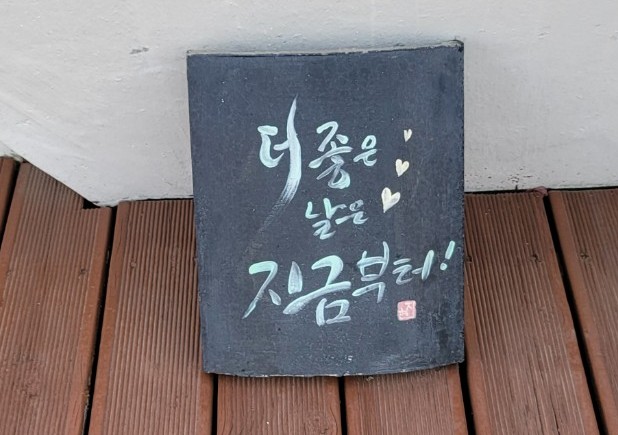 더 좋은
날은
지금부터!